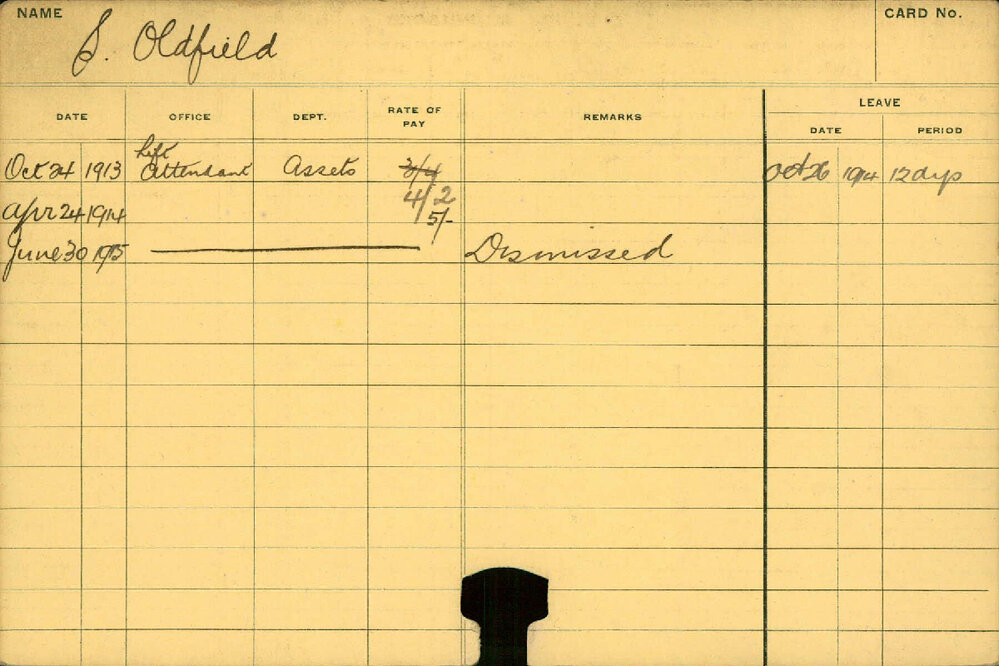 NAME
S. Oldfield
CARD No.
DATE OFFICE DEPT. RATE OF PAY REMARKS LEAVE
DATE PERIOD
Oct 24 1913 Lift Attendant Assets 3/4 Oct 26 1914 12 dys
Apr 24 1914 4/2
5/-
June 30 1915 Dismissed